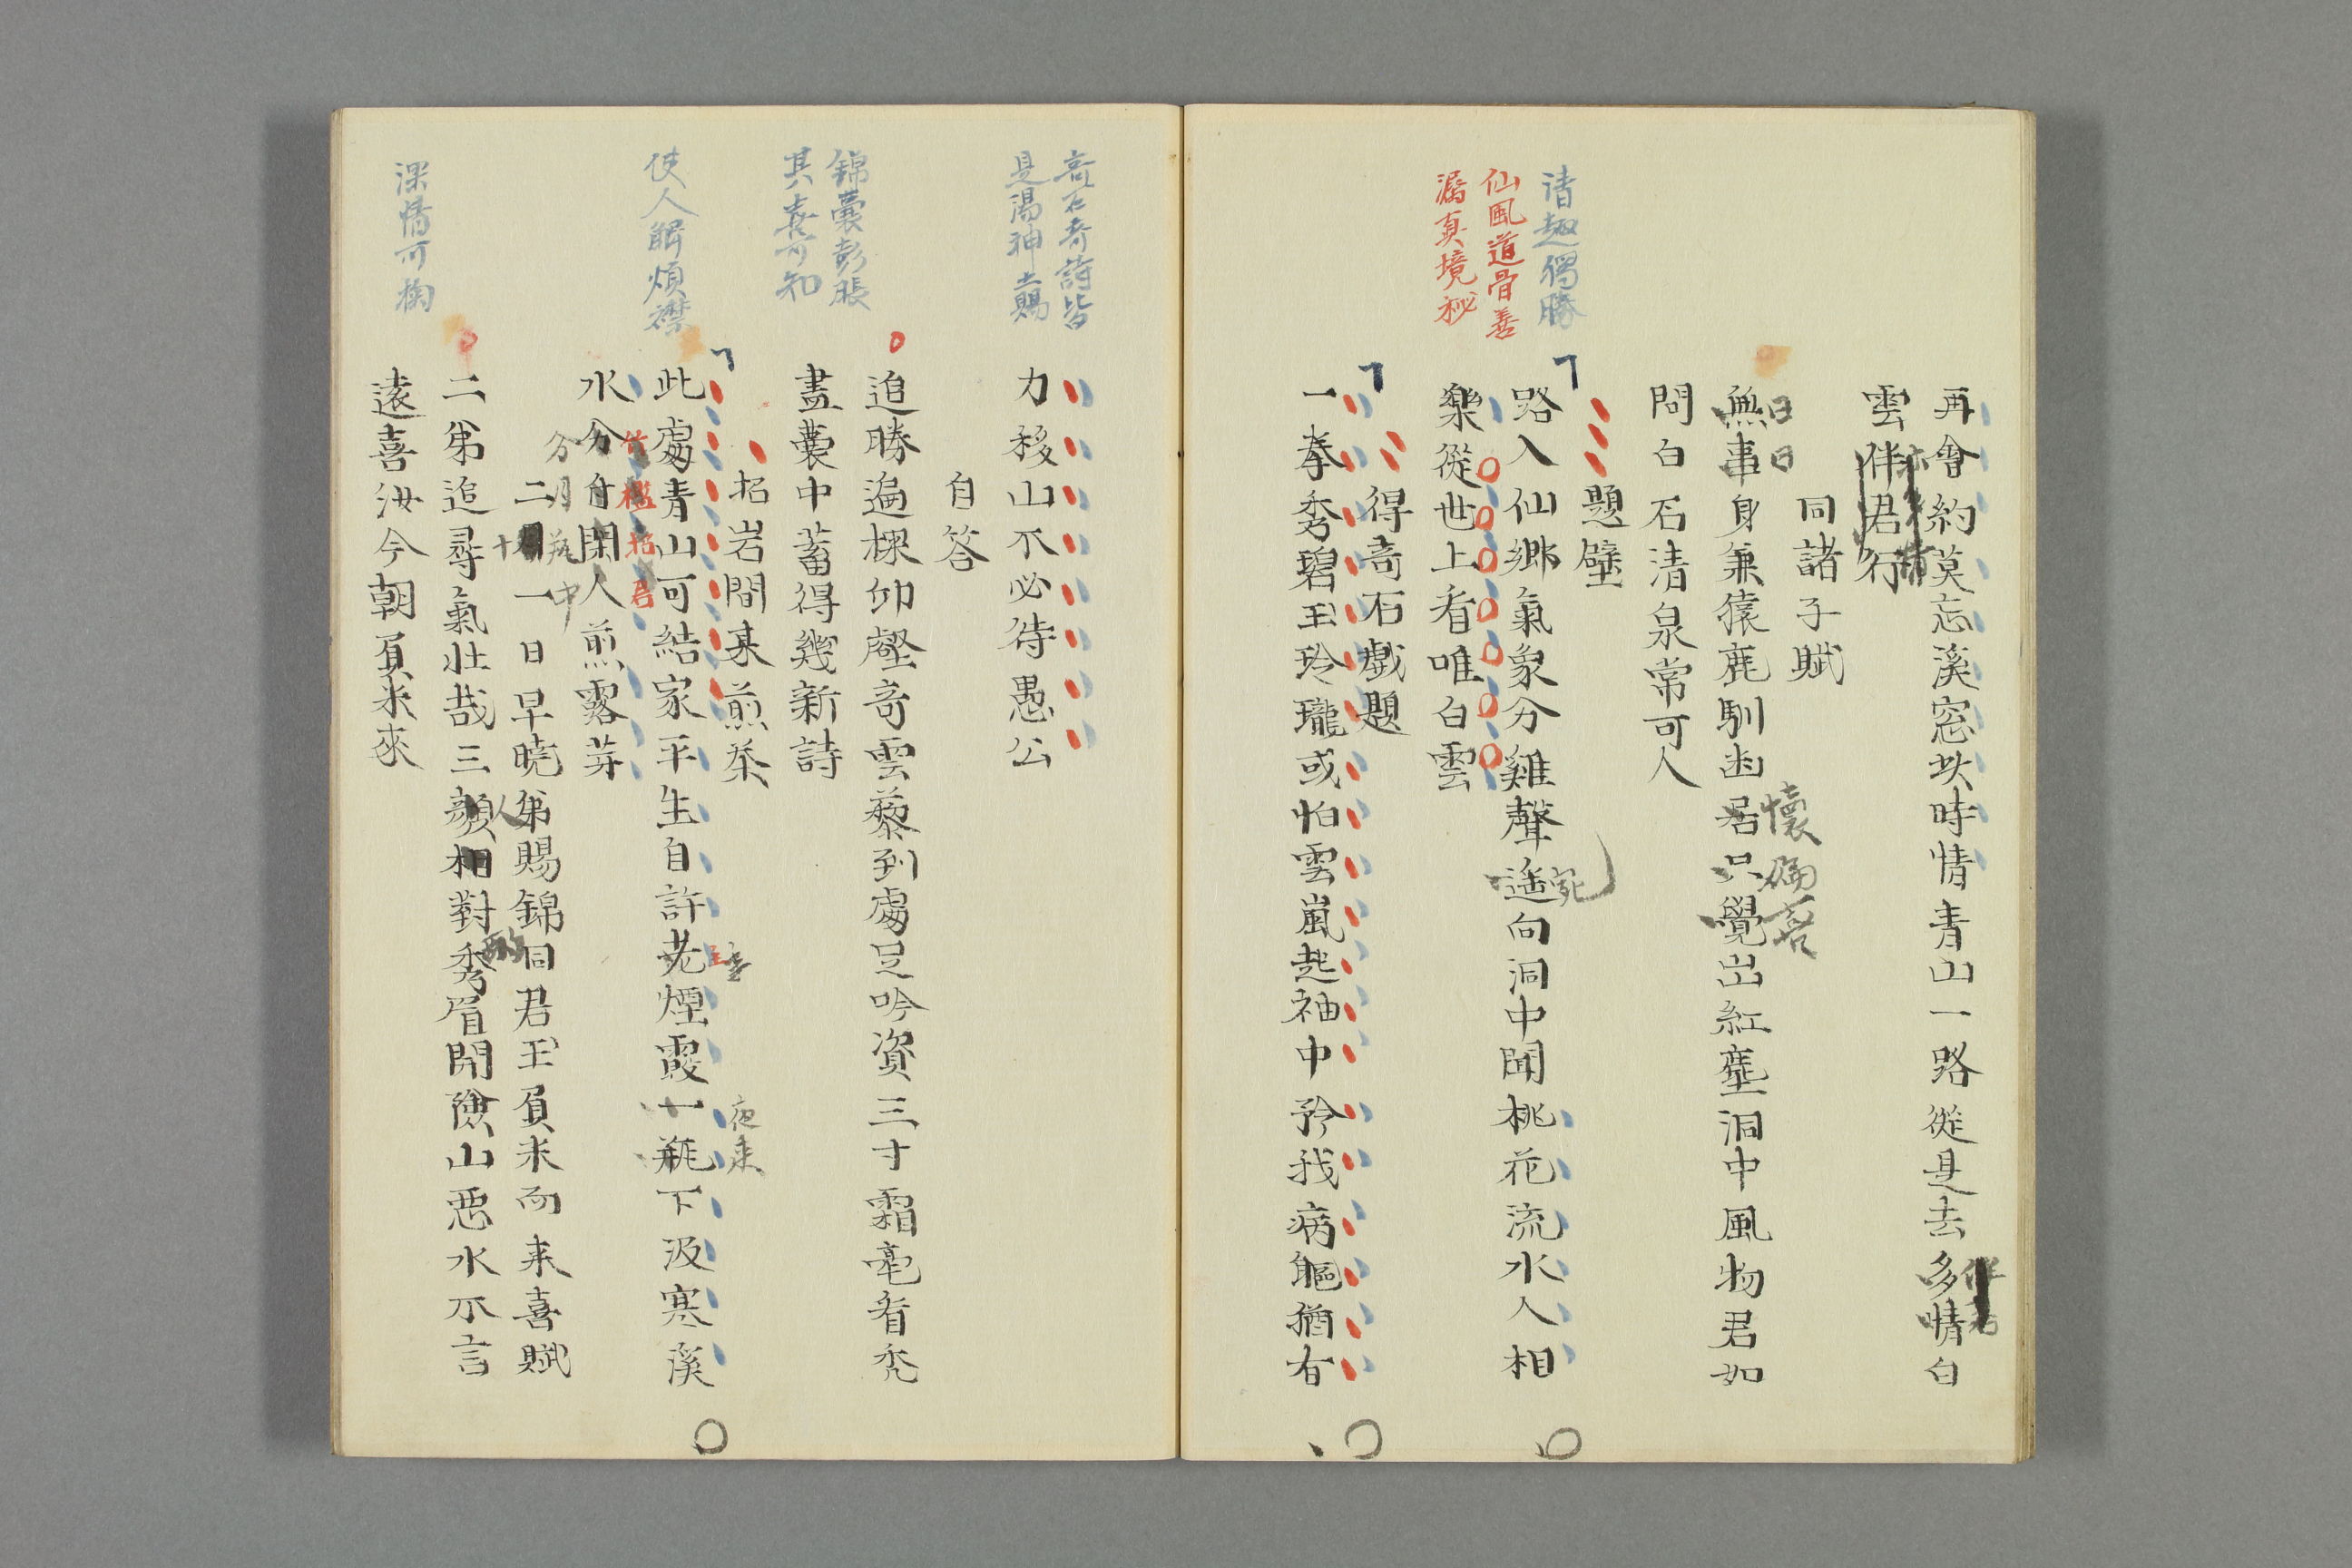 再會約莫忘溪窓坎時情青山一路從是去多情白
雲伴君行
同諸子賦
日日
無事身兼猿鹿馴幽居只覺出紅塵洞中風物君如
懷
問白石清泉常可人
題壁
路入仙鄉氣象分雞聲遥向洞中聞桃花流水人相
宛
樂從世上看唯白雲
得奇石戲題
一拳秀碧玉玲瓏或怕雲嵐起袖中矜我病軀猶有
清趣獨勝
仙風道骨善
漏真境秘
力移山不必待愚公
自答
追勝遍探卯壑奇雲藜到處足吟資三寸霜毫看禿
盡囊中蓄得幾新詩
招岩間某煎茶
此處青山可結家平生自許老煙霞一瓶下汲寒溪
夜来
水分付閑人煎露芽
竹檻招君
分月瓶中
二十一日早曉弟賜錦同君玉負米而来喜賦
二弟追尋氣壯哉三顏相對秀眉開險山惡水不言
人
遠喜汝今朝負米來
奇石奇詩皆
是湯神之賜
錦囊彭脹
其喜可知
使人解煩襟
深情可掬